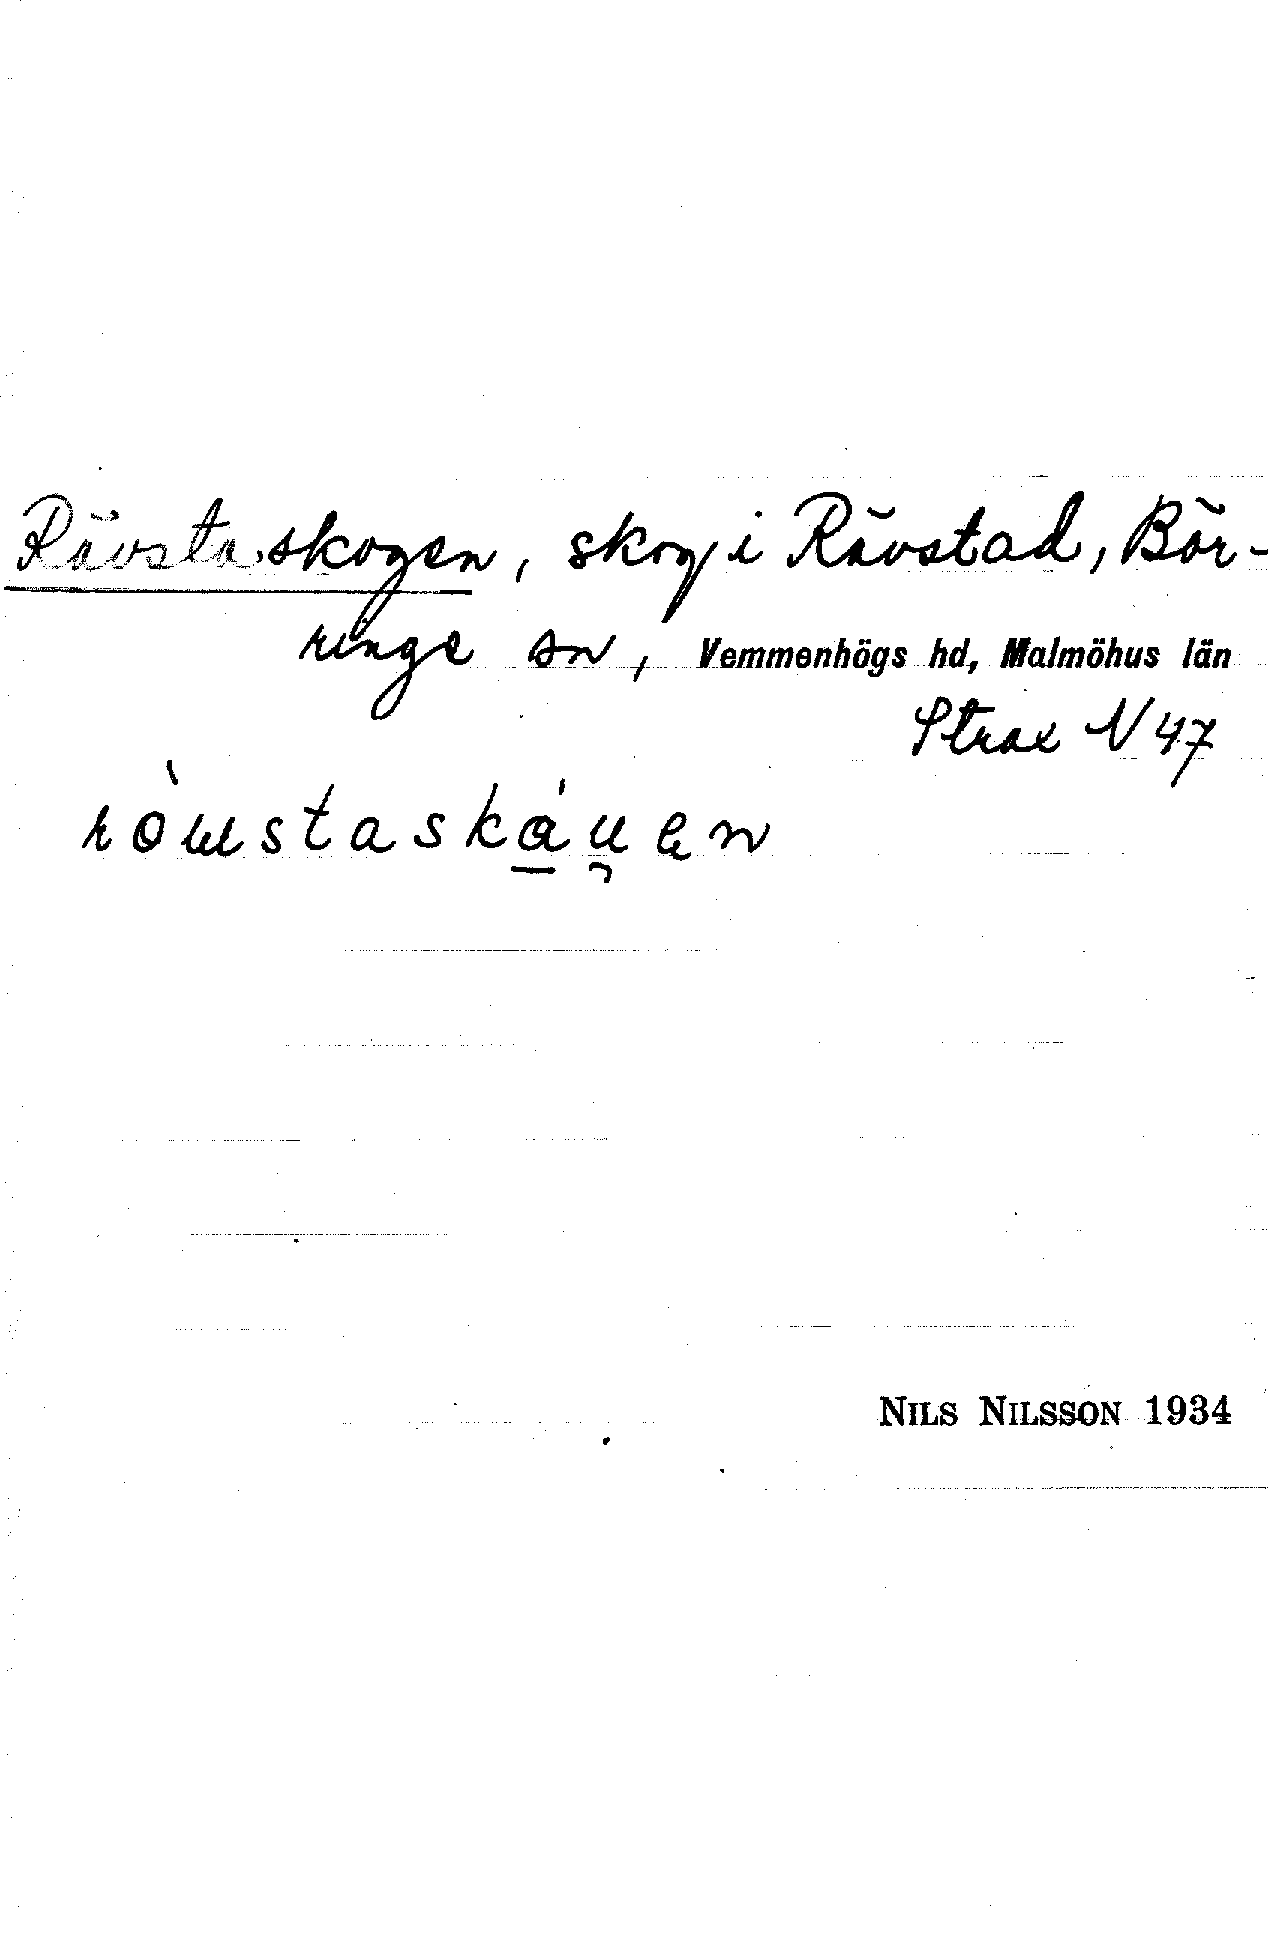 Rävstaskogen, skog i Rävstad, Bör-
ringe sn, Vemmenhögs hd, Malmöhus län
Strax N 47
NILS NILSSON 1934